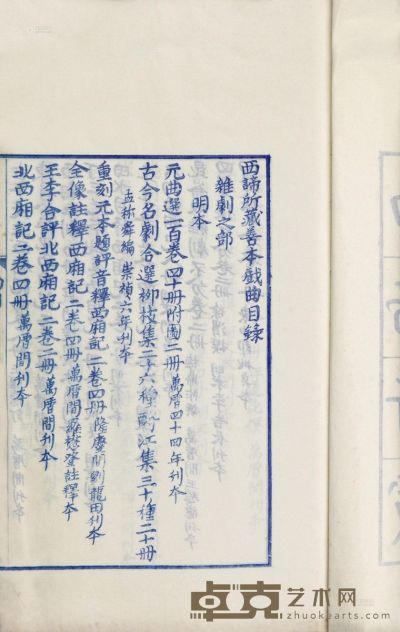 西諦所藏善本戲曲目錄
雜劇之部
明本
元曲選一百卷四十冊附圖二冊萬曆四十四年刊本
古今名劇合選柳枝集二十六種酹江集三十種二十冊
孟称舜編 崇禎六年刊本
重刻元本題評音釋西廂記二卷四冊隆慶間劉龍田刊本
全像註釋西廂記二卷四冊萬曆間羅懋登註釋本
王李合評北西廂記二卷二冊萬曆間刊本
北西廂記二卷四冊萬曆間刊本
卓克艺术网
www.zhuokearts.com